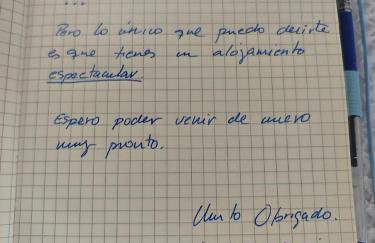 ...
Pero lo único que puedo decirte
es que tienes un alojamiento
espectacular.
Espero poder venir de nuevo
muy pronto.
Muito Obrigado.